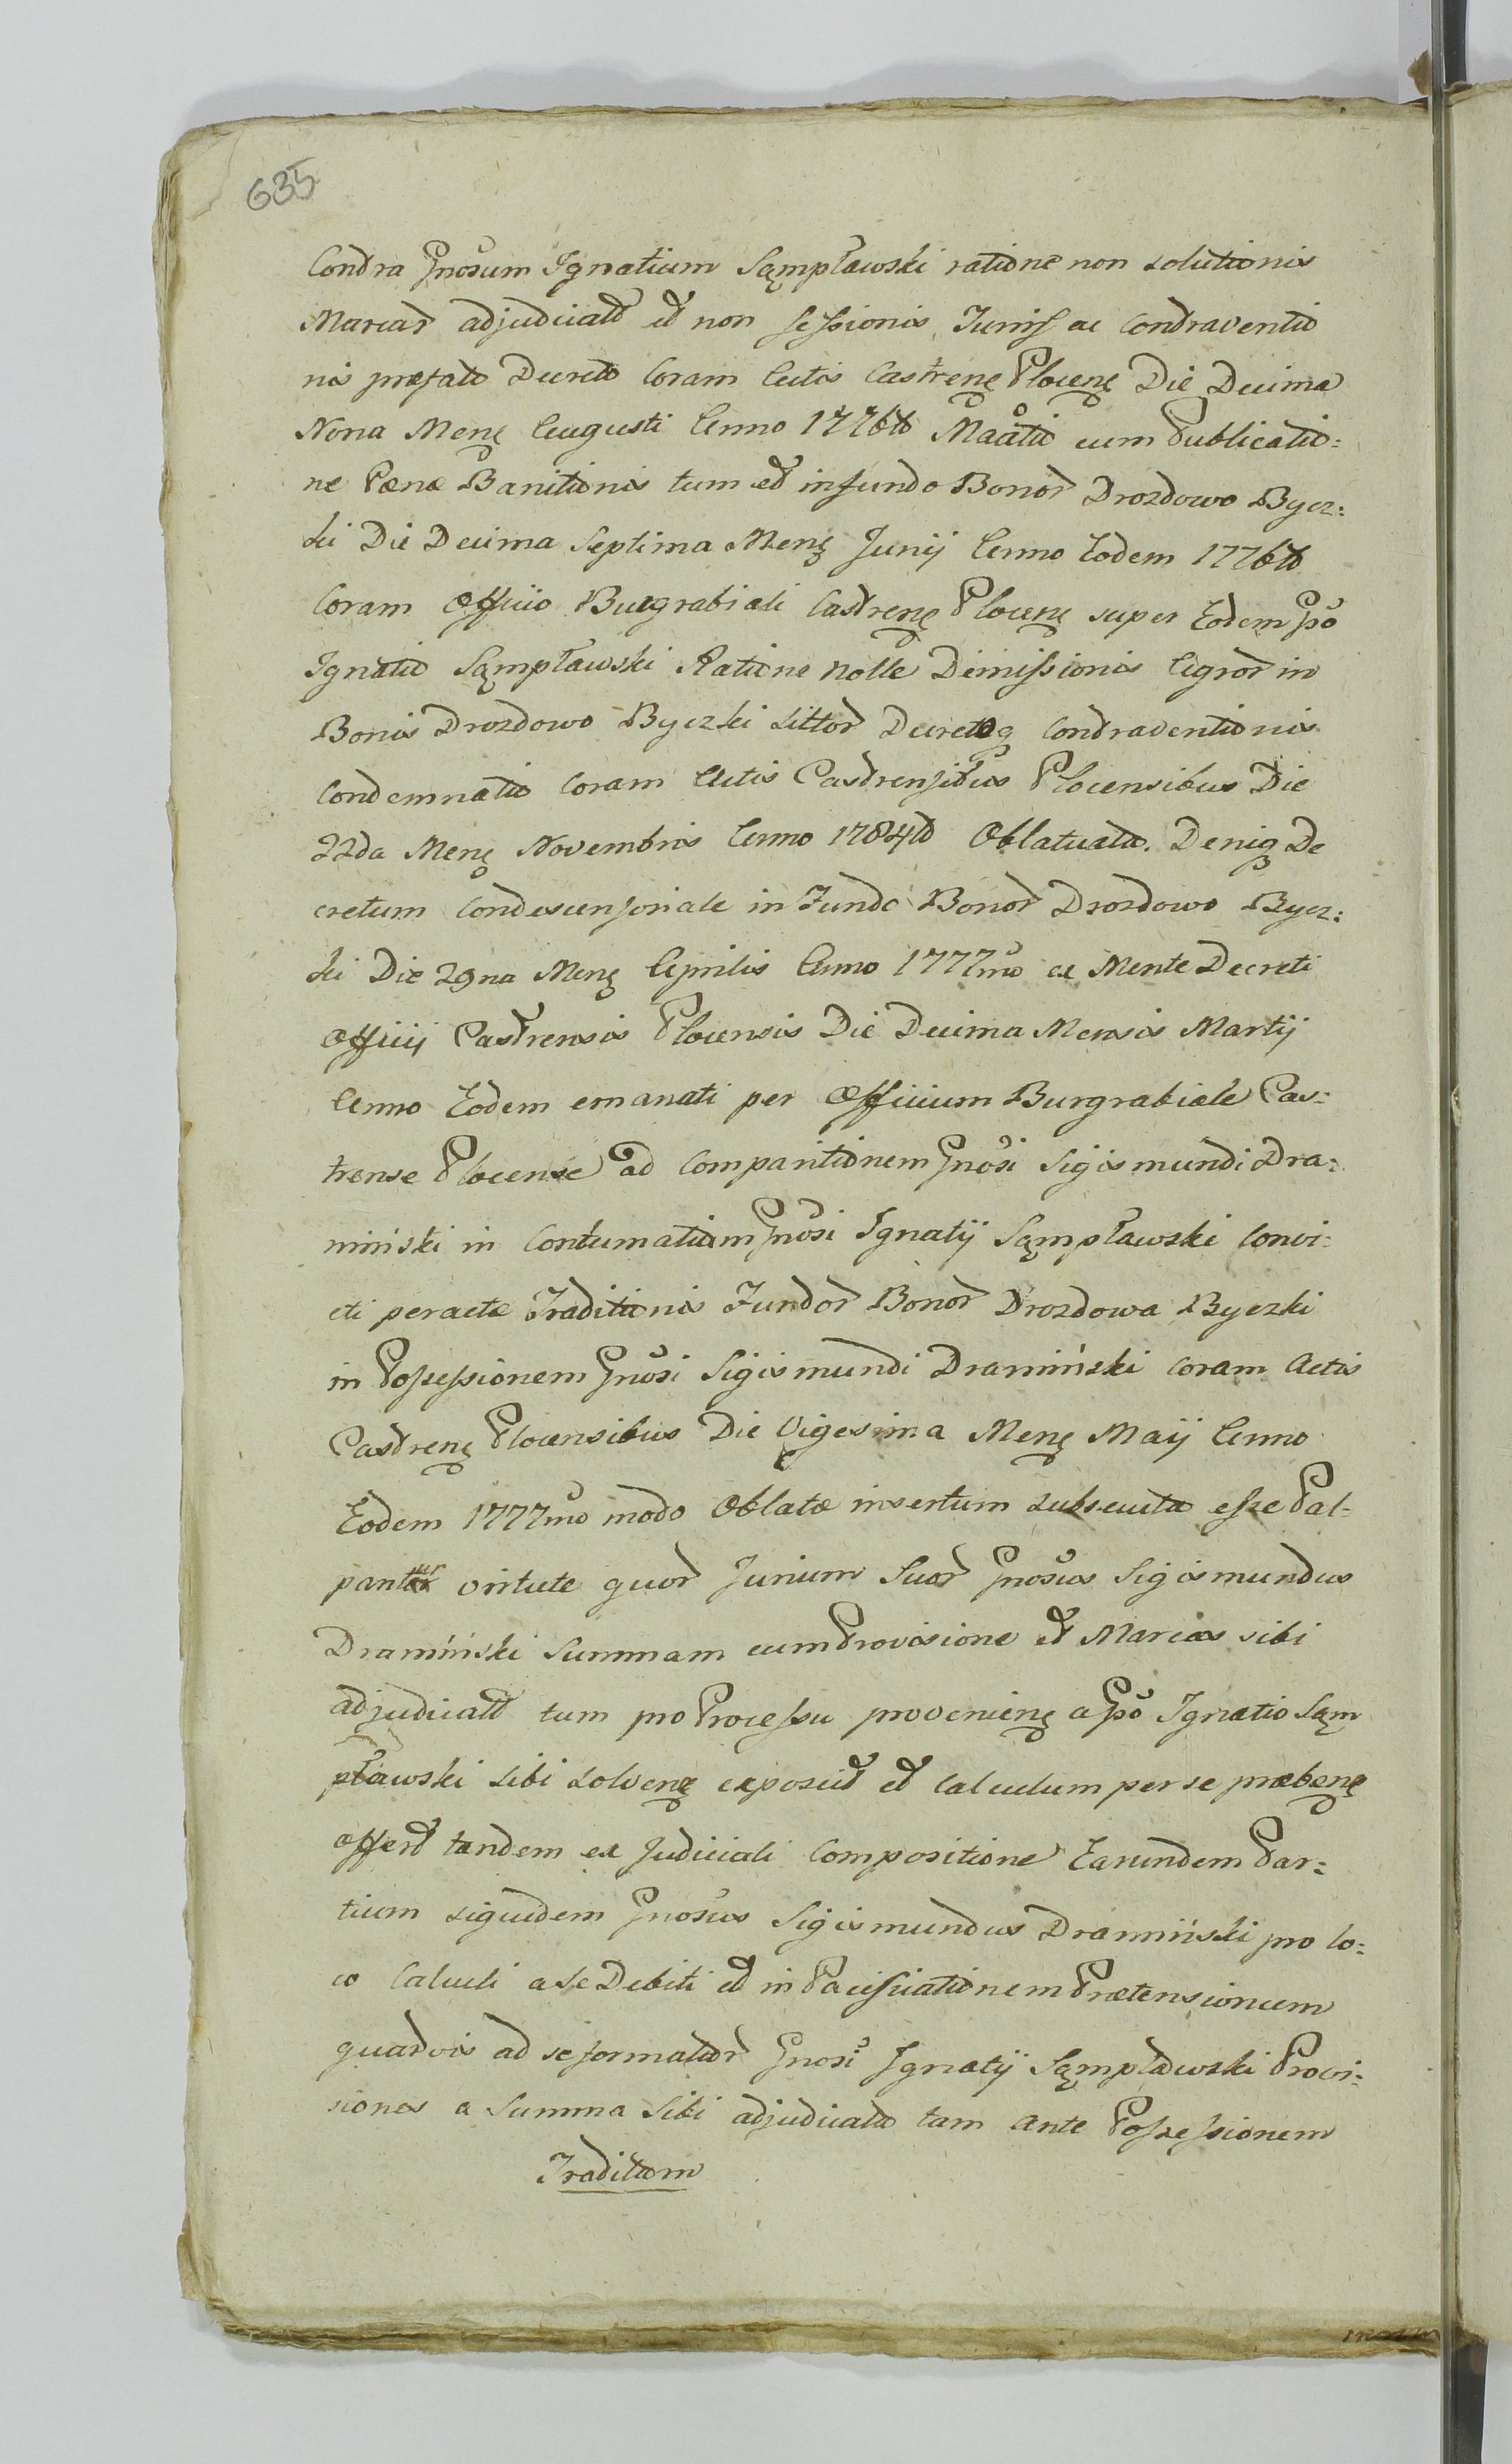 635
Contra Gnosum Ignatium Sąmpławski ratione non solutionis
Marcar adjudicatt et non sessionis Turris ac Contraventio
nis præfato Decreto Coram Actis Castrenę Plocenę Die Decima
Nona Menę Augusti Anno 1776to Maatio cum Publicatio=
ne Pænæ Banitionis tum et in fundo Bonor Drozdowo Bycz=
ki Die Decima Septima Menę Junij Anno Eodem 1776to
Coram Officio Burgrabiali Castrenę Plocenę super Eodem Gso
Ignatio Sąmpławski Ratione nolle Dimissionis Agror in
Bonis Drozdowo Byczki sittor Decretoq Contraventionis
Condemnatio Coram Actis Castrensibus Plocensibus Die
22da Menę Novembris Anno 1784to Oblatuata. Deniq De
cretum Condescensoriale in Fundo Bonor Drozdowo Bycz=
ki Die 29na Menę Aprilis Anno 1777mo ex Mente Decreti
Officij Castrensis Plocensis Die Decima Mensis Martij
Anno Eodem emanati per Officium Burgrabiale Cas=
trense Plocense ad Comparitionem Gnosi Sigismundi Dra=
miński in Contumatiam Gnosi Ignatij Sąmpławski Convi=
cti peractæ Traditionis Fundor Bonor Drozdowa Byczki
in Possessionem Gnosi Sigismundi Dramiński Coram Actis
Castrenę Plocensibus Die Vigesima Menę Maij Anno
Eodem 1777mo modo Oblatæ insertum subsecuta esse Pal=
pantur virtute quor Jurium Suor Gnosus Sigismundus
Dramiński Summam cum Provisione et Marcas sibi
adjudicatt tum pro Processu provenienę a Gso Ignatio Sąm
pławski sibi solvenę exposcit et Calculum per se præbenę
offert tandem ex Judiciali Compositione Earundem Par=
tium siquidem Gnosus Sigismundus Dramiński pro lo=
co Calculi a se Debiti et in Pacificationem Prætensionum
quarvis ad se formatar Gnosi Ignatij Sąmpławski Provi=
siones a Summa Sibi adjudicata tam ante Possessionem
Traditam